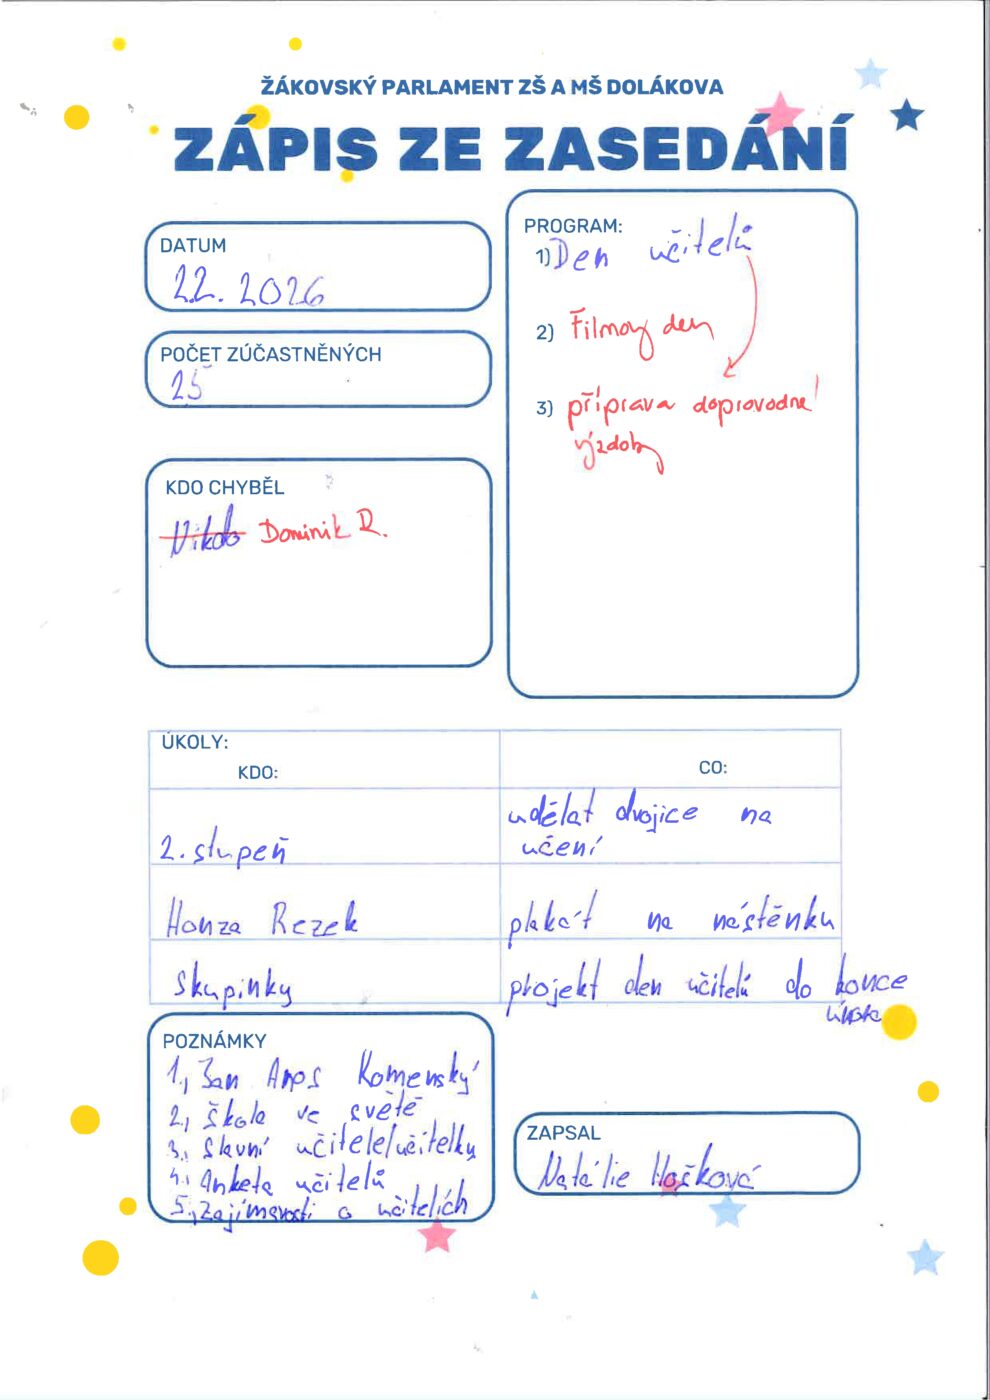 ŽÁKOVSKÝ PARLAMENT ZŠ A MŠ DOLÁKOVA
ZÁPIS ZE ZASEDÁNÍ
DATUM
2.2. 2026
POČET ZÚČASTNĚNÝCH
25
KDO CHYBĚL
Nikdo Dominik R.
PROGRAM:
1) Den učitelů
2) Filmový den
3) příprava doprovodné
výzdoby
ÚKOLY:
KDO:
CO:
2. stupeň
udělat dvojice na
učení
Honza Rezek
plakát na nástěnku
skupinky
projekt den učitelů do konce
února
POZNÁMKY
1., Jan Amos Komenský
2., škola ve světě
3., slavní učitelé/učitelky
4., Anketa učitelů
5., Zajímavosti o učitelích
ZAPSAL
Natálie Hošková